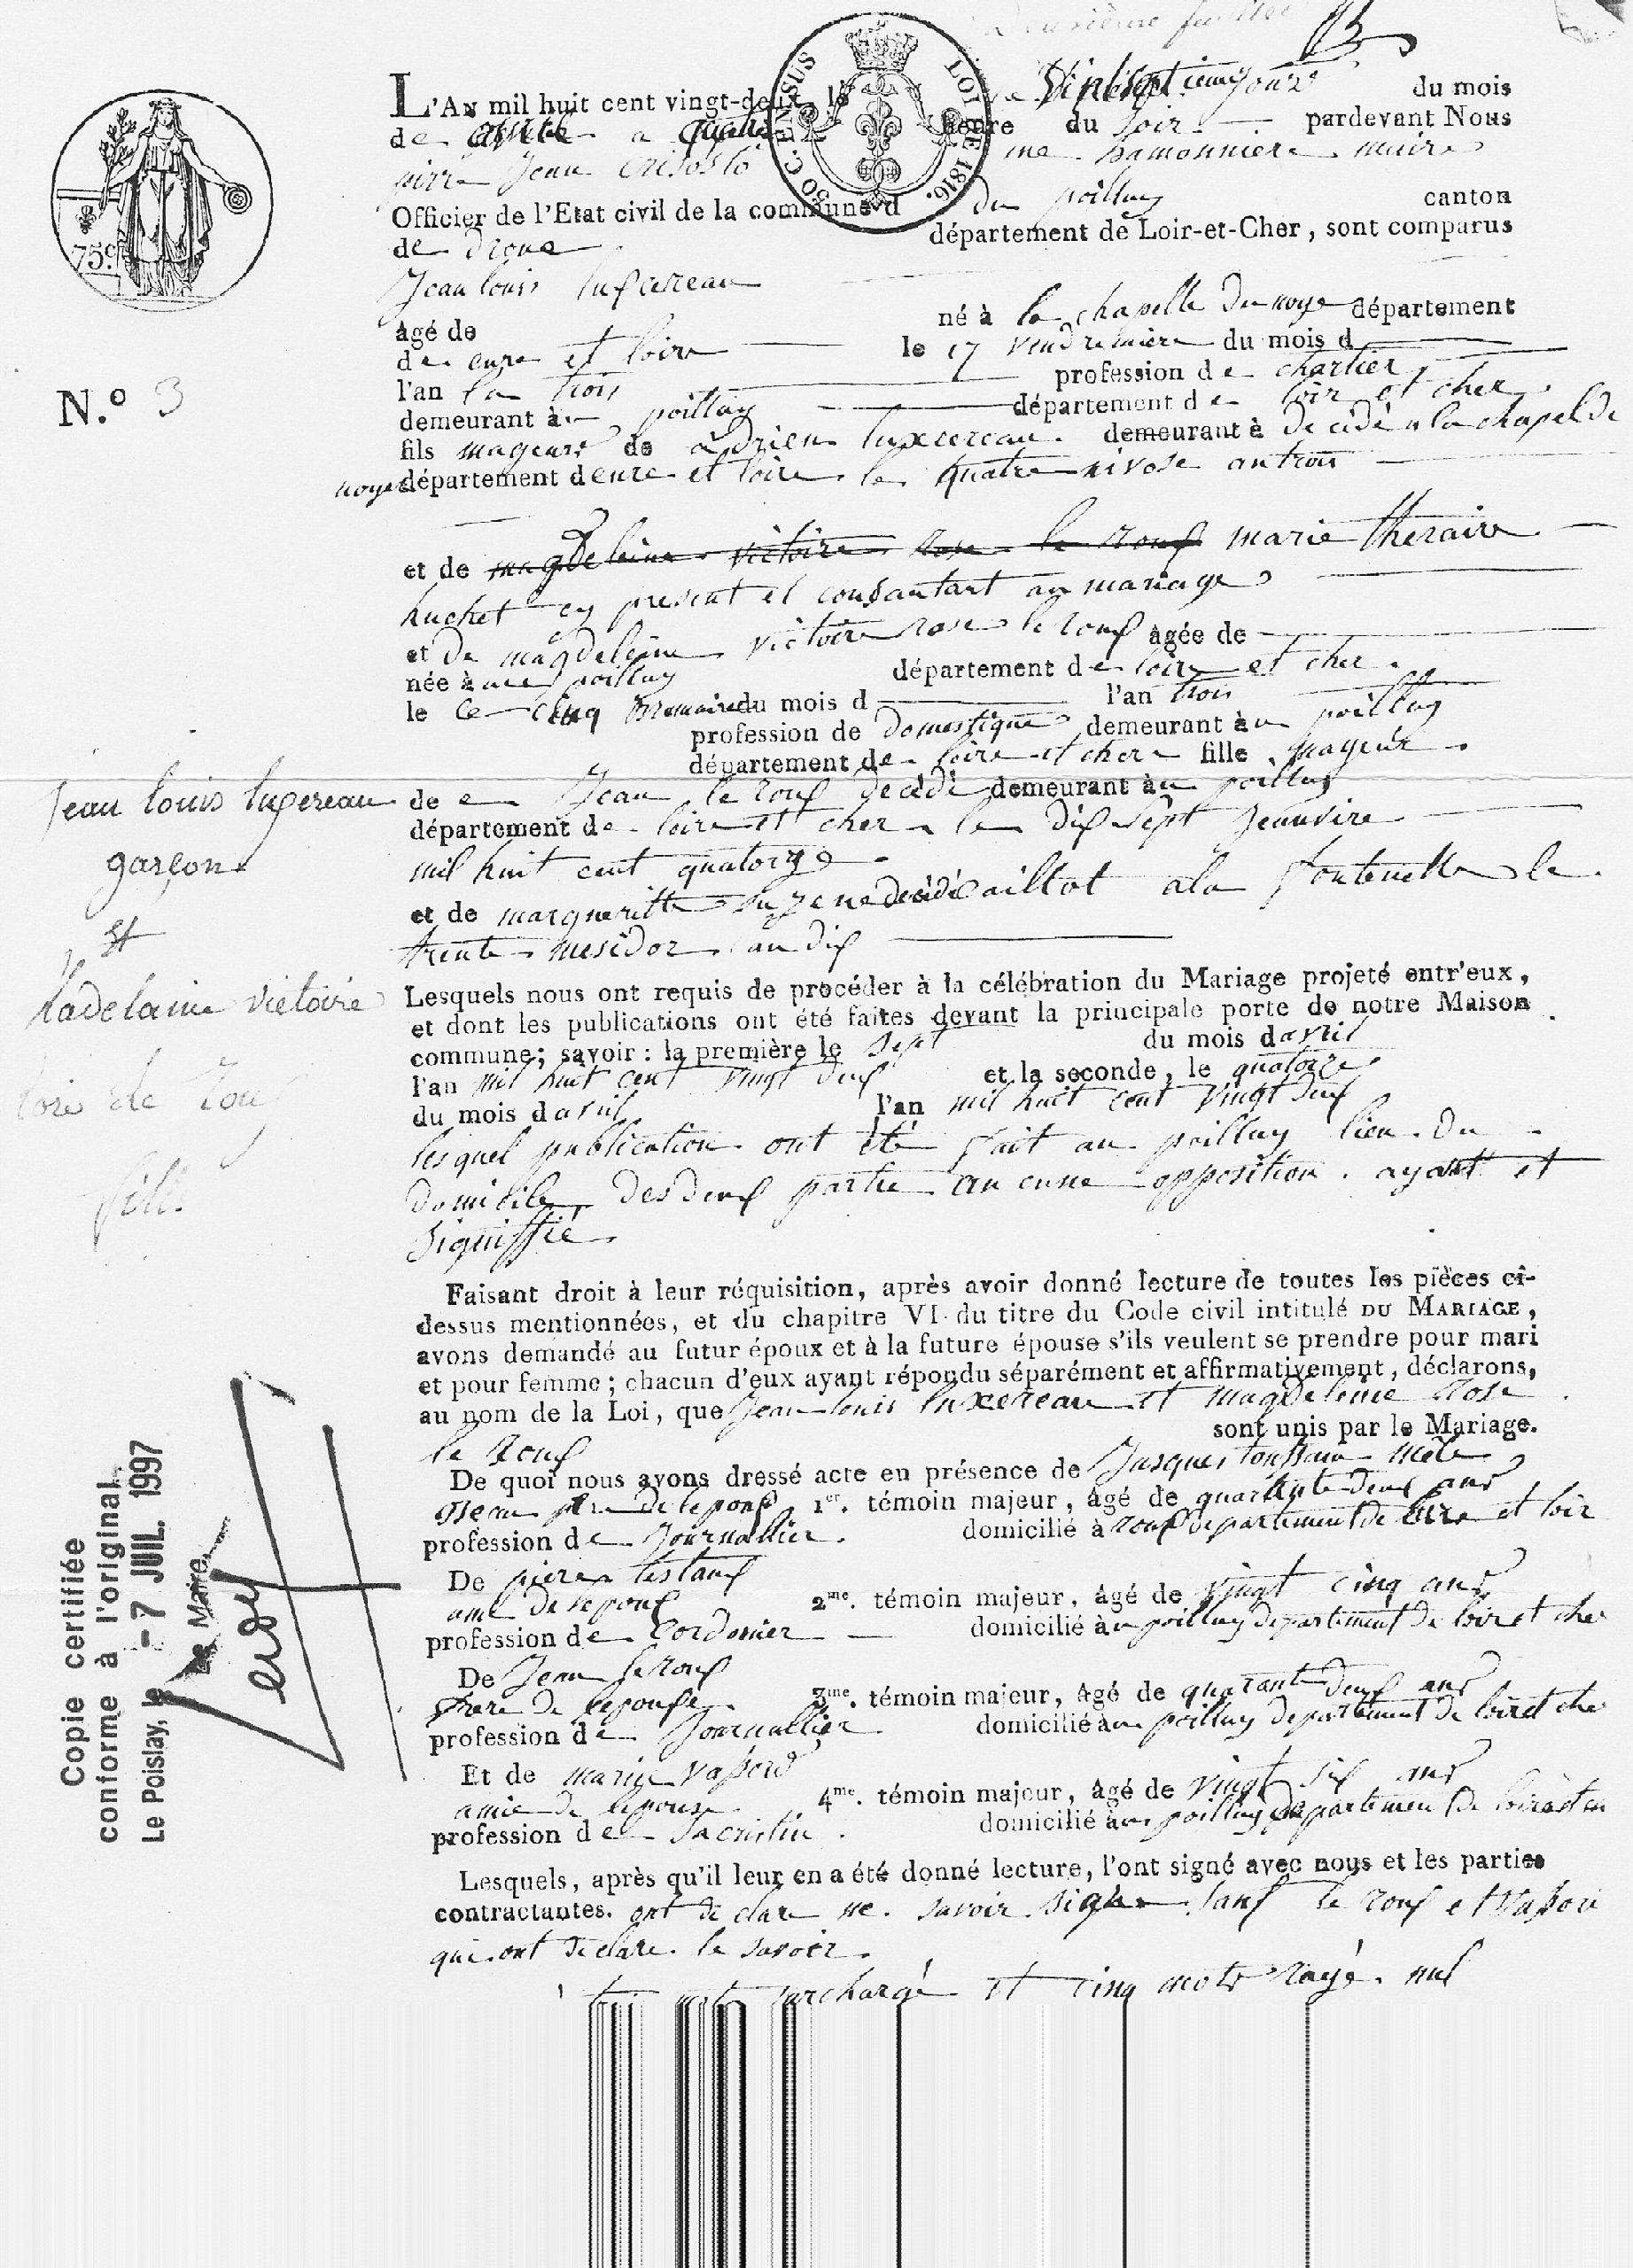 deuxième feuillet
L'AN mil huit cent vingt-deux, le Vintsept ieme jour du mois
de avril a quatre heure du soir pardevant Nous
pirre Jean Crisosto me hamonniere maire
Officier de l'Etat civil de la commune d du poillay canton
de droue département de Loir-et-Cher, sont comparus
Jean louis luxereau
âgé de né à la chapelle du noye département
de eure et loire le 17 vendremiere du mois d
l'an la trois profession de chartier
demeurant à poillay département de loir et cher
fils mageure de adrien luxcereau demeurant à décédé a la chapel de
noye département deure et loire le quatre nivose an trois
et de magdeleine victoire rose le roux marie theraire
huchet cy present et consantant au mariage
et de magdeleine victoire rose le roux âgée de
née à au poillay département de loire et cher
le Ce cinq Bremaire du mois d l'an trois
profession de domestique demeurant à au poillay
département de loire et cher fille mageur
de Jean le roux décédé demeurant à au poillay
département de loire et cher le dix sept Jeanvire
mil huit cent quatorze
et de margueritte suzene décédé aillot a la fontenelle le
trente mesidor an dix
Lesquels nous ont requis de procéder à la célébration du Mariage projeté entr'eux,
et dont les publications ont été faites devant la principale porte de notre Maison
commune; savoir: la première le sept du mois davril
l'an mil huit cent vingt deux et la seconde, le quatorze
du mois davril l'an mil huit cent vingt deux
lesquel publication ont été fait au poillay lieu du
domicile des deux partie aucune opposition ayant et
signiffié
Faisant droit à leur réquisition, après avoir donné lecture de toutes les pièces ci-
dessus mentionnées, et du chapitre VI du titre du Code civil intitulé DU MARIAGE,
avons demandé au futur époux et à la future épouse s'ils veulent se prendre pour mari
et pour femme; chacun d'eux ayant répondu séparément et affirmativement, déclarons,
au nom de la Loi, que Jean louis luxereau et magdeleine rose
le roux sont unis par le Mariage.
De quoi nous avons dressé acte en présence de Jasques toussain
1er. témoin majeur, âgé de quarante deux ans
profession de Journallier domicilié à departement de et loir
De pierre testaux
ami de lepoux 2me. témoin majeur, âgé de vingt cinq ans
profession de Cordonier domicilié à au poillay departement de loir et cher
De Jean leroux
frere de lepouse 3me. témoin majeur, âgé de quarante deux ans
profession de Journallier domicilié à au poillay departement de loir et cher
Et de marin vassord
amie de lepouse 4me. témoin majeur, âgé de vingt six ans
profession de Sacristin domicilié à au poillay departement de loir et cher
Lesquels, après qu'il leur en a été donné lecture, l'ont signé avec nous et les parties
contractantes. ont declare ne savoir signer sauf le roux et vassord
qui ont declare le savoir
mots surchargé et cinq mots rayé nul
75 c.
N.o 3
Jean louis luxereau
garçon
et
Madelaine Victoire
rose le roux
fille
Copie certifiée
conforme à l'original.
Le Poislay, le - 7 JUIL. 1997
Le Maire,
Leroy